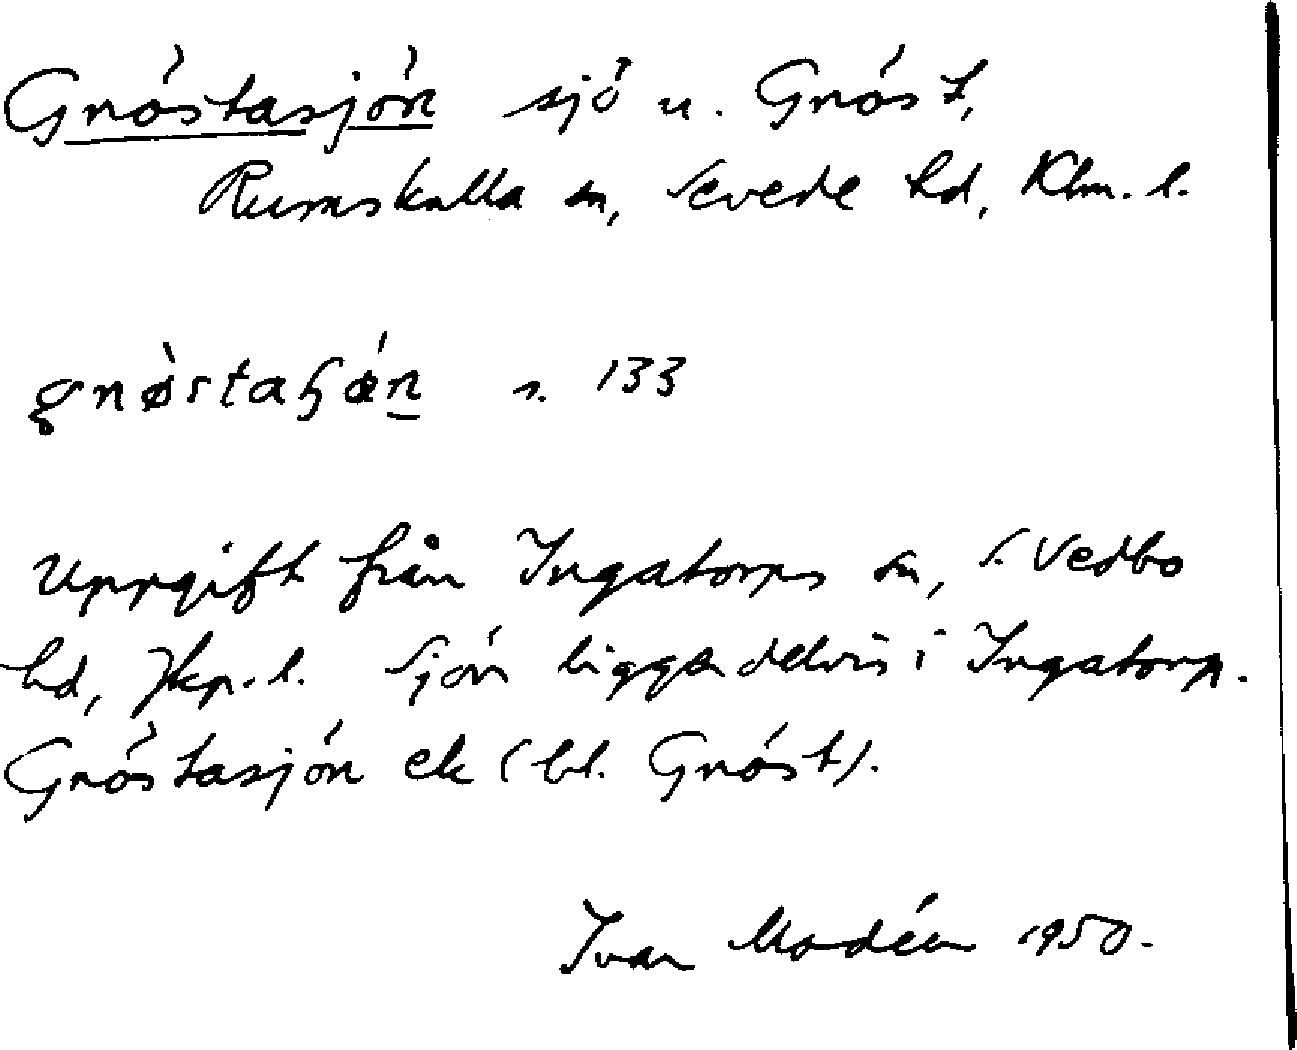 Gnöstasjön sjö u. Gnöst,
Rumskulla sn, Sevede hd, Klm. l.
s. 133
Uppgift från Ingatorps sn, S. Vedbo
hd, Jkp. l. Sjön ligger delvis i Ingatorp.
Gnöstasjön ek (bl. Gnöst).
Ivar Modéer 1950.